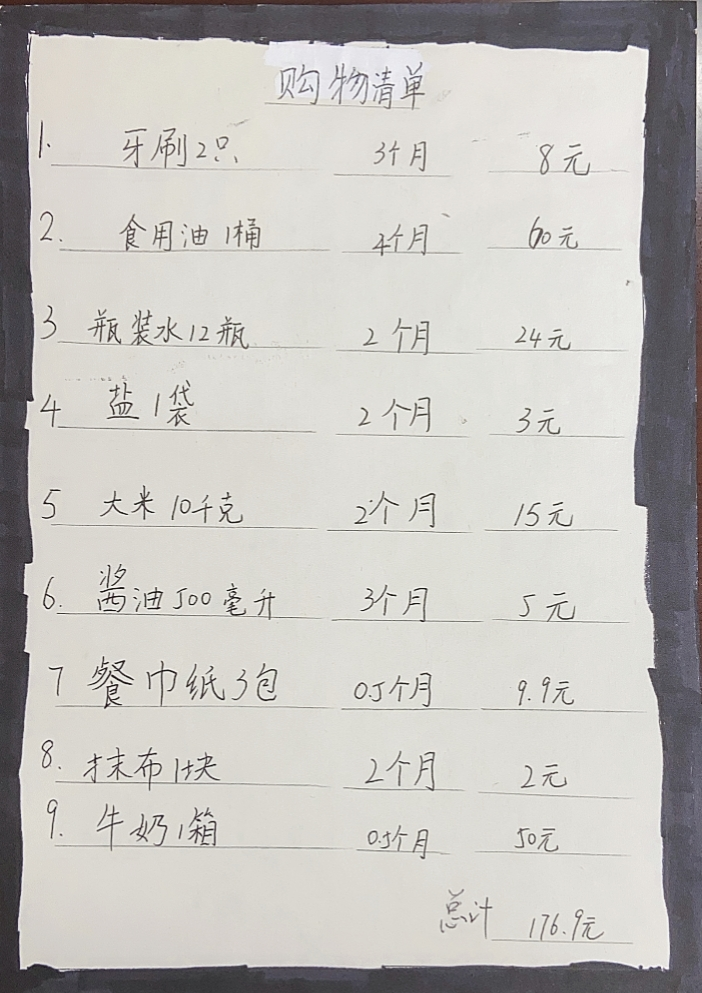 购物清单
1. 牙刷2只 3个月 8元
2. 食用油1桶 4个月 60元
3 瓶装水12瓶 2个月 24元
4 盐1袋 2个月 3元
5 大米10千克 2个月 15元
6. 酱油500毫升 3个月 5元
7 餐巾纸3包 0.5个月 9.9元
8. 抹布1块 2个月 2元
9. 牛奶1箱 0.5个月 50元
总计 176.9元